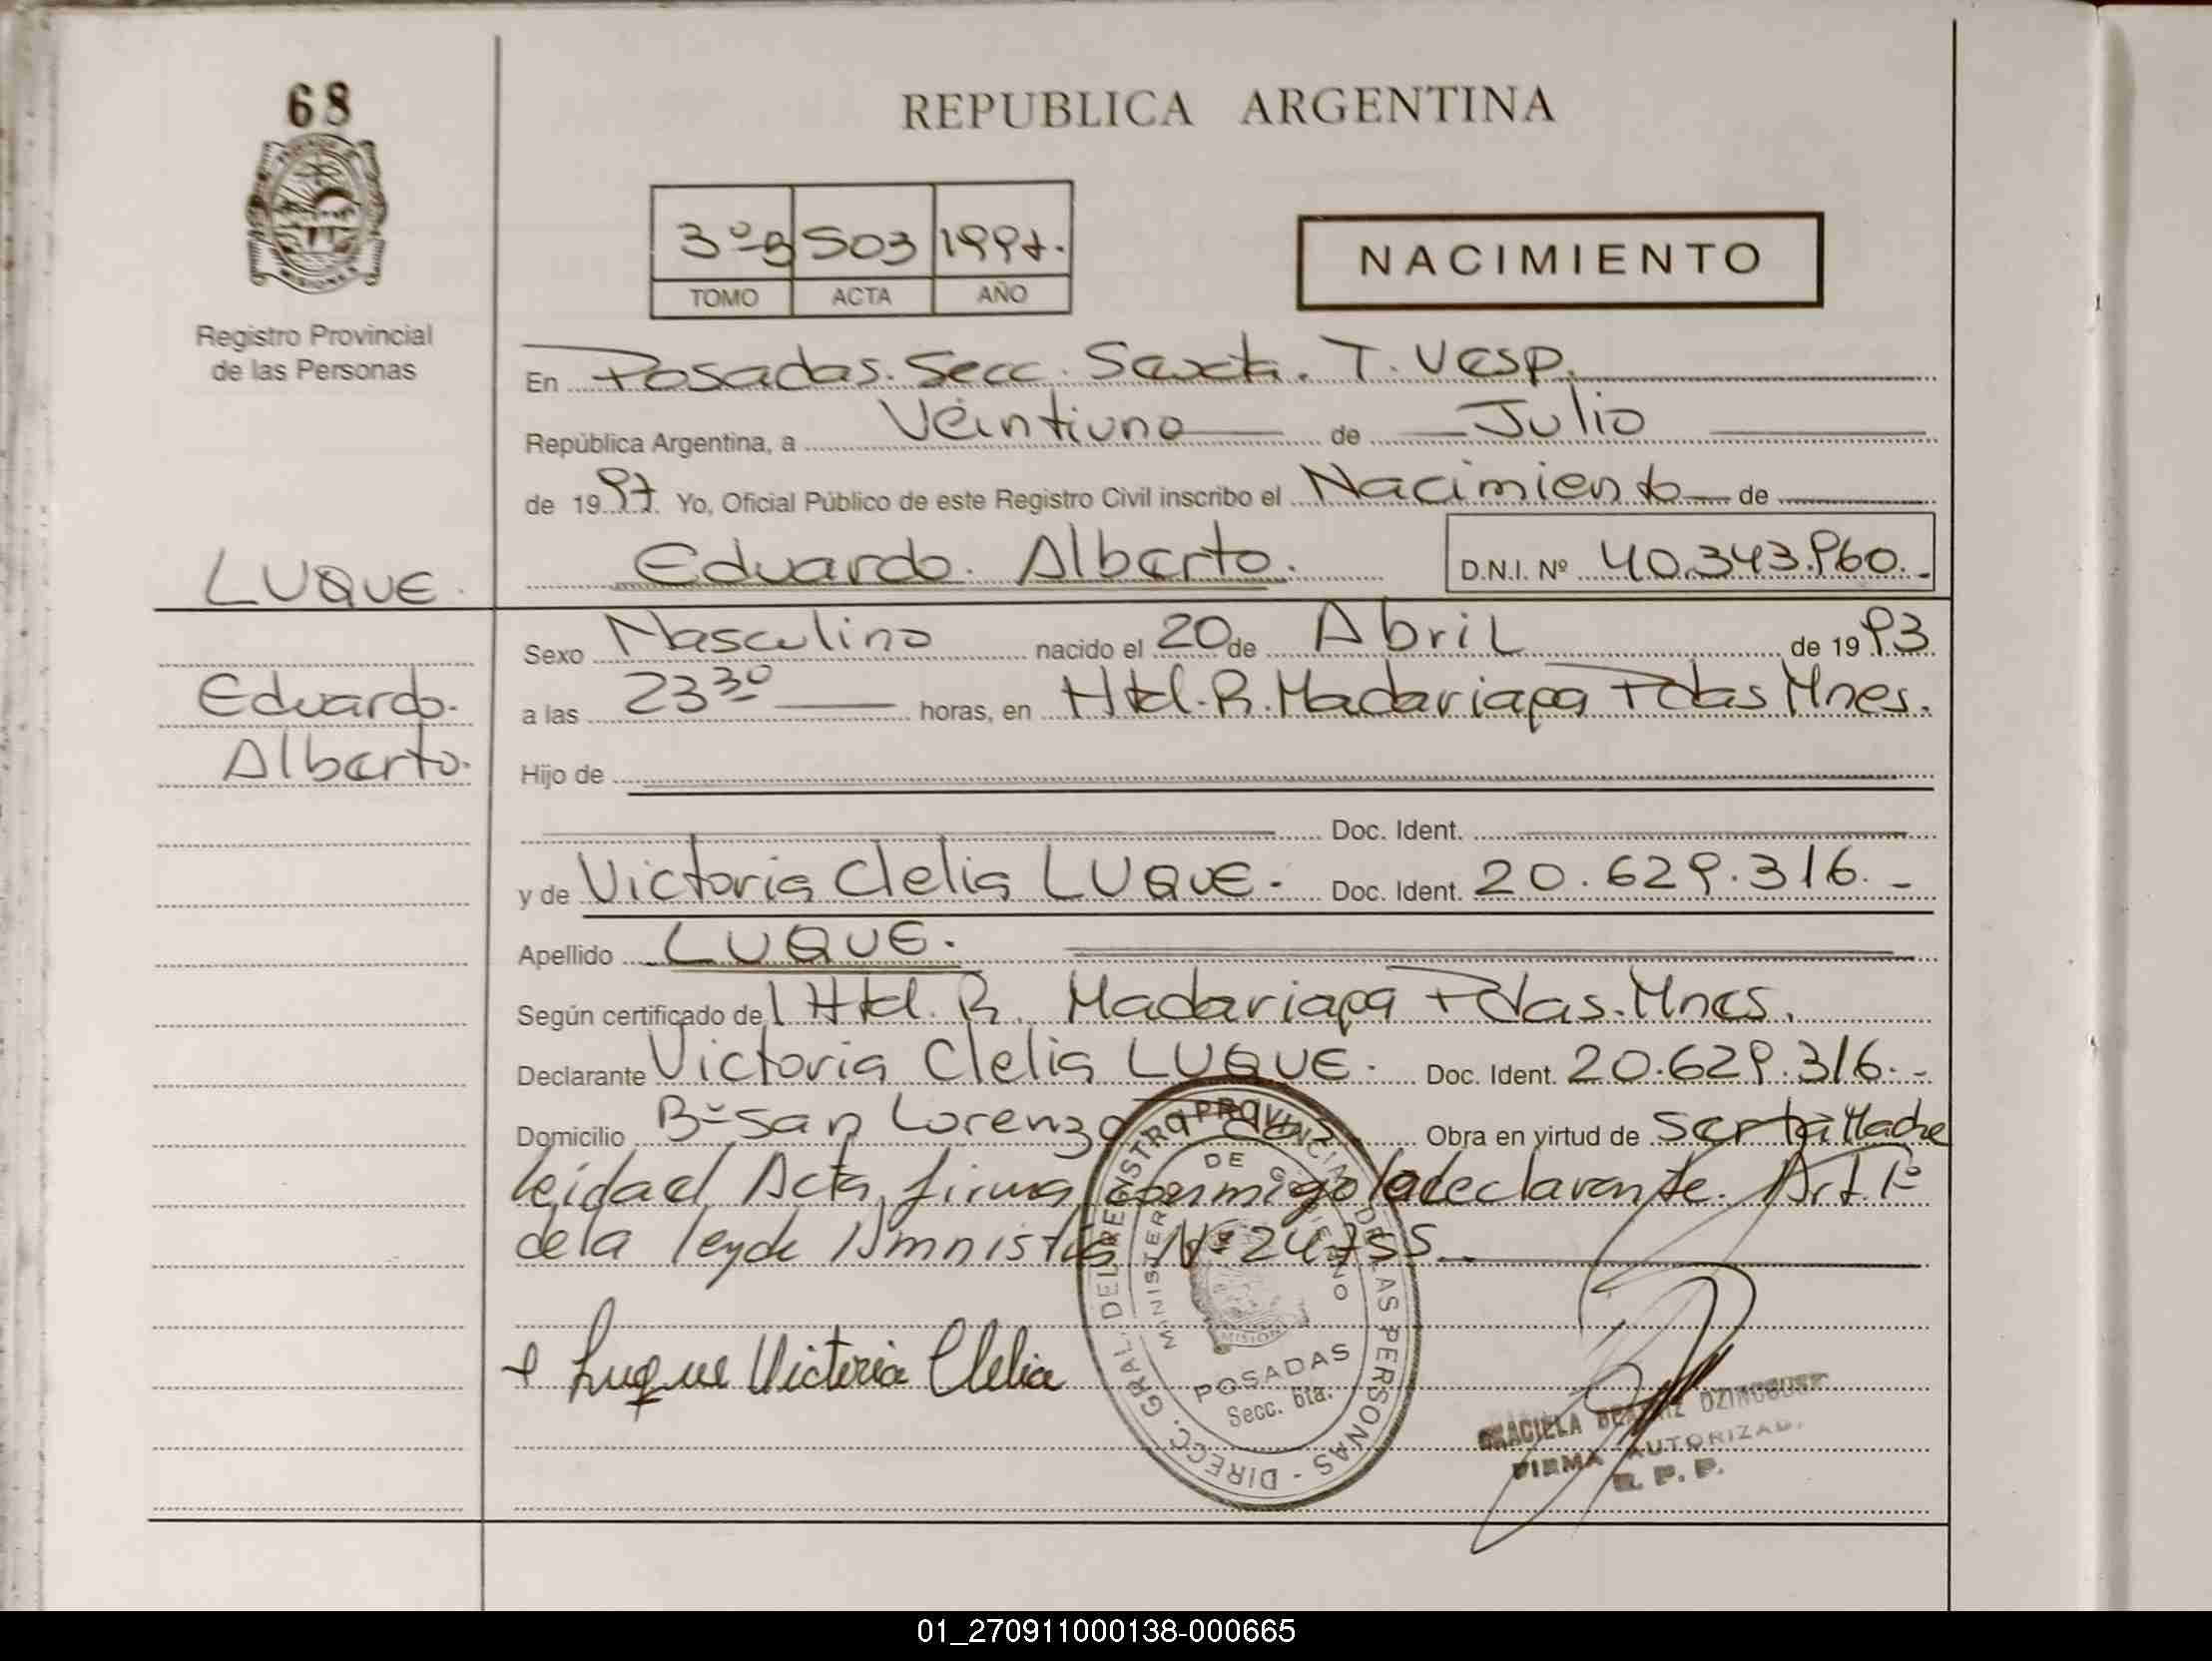 68
REPUBLICA ARGENTINA
3º B 503 1997.
TOMO ACTA AÑO
NACIMIENTO
Registro Provincial
de las Personas
En Posadas. Secc. Sexta. T. Vesp.
República Argentina, a Veintiuno de Julio
de 1997. Yo, Oficial Público de este Registro Civil inscribo el Nacimiento de
LUQUE.
Eduardo. Alberto. D.N.I. Nº 40.343.960.-
Sexo Masculino nacido el 20 de Abril de 1993
Eduardo.
a las 23 30 horas, en Htal. R. Madariaga Pdas Mnes.
Alberto.
Hijo de
Doc. Ident.
y de Victoria Clelia LUQUE.- Doc. Ident. 20.629.316.-
Apellido LUQUE.
Según certificado del Htal. R. Madariaga Pdas. Mnes.
Declarante Victoria Clelia LUQUE. Doc. Ident. 20.629.316.-
Domicilio Bº San Lorenzo Pdas. Obra en virtud de ser la Madre
leida el Acta, firma conmigo la declarante. Art. 1º
de la ley de Amnistia Nº 24755.-
+ Luque Victoria Clelia
DIRECC. GRAL. DEL REGISTRO PROVINCIAL DE LAS PERSONAS
MINISTERIO DE GOBIERNO
MISIONES
POSADAS
Secc. 6ta.
GRACIELA BEATRIZ
FIRMA AUTORIZADA
R. P. P.
01_270911000138-000665